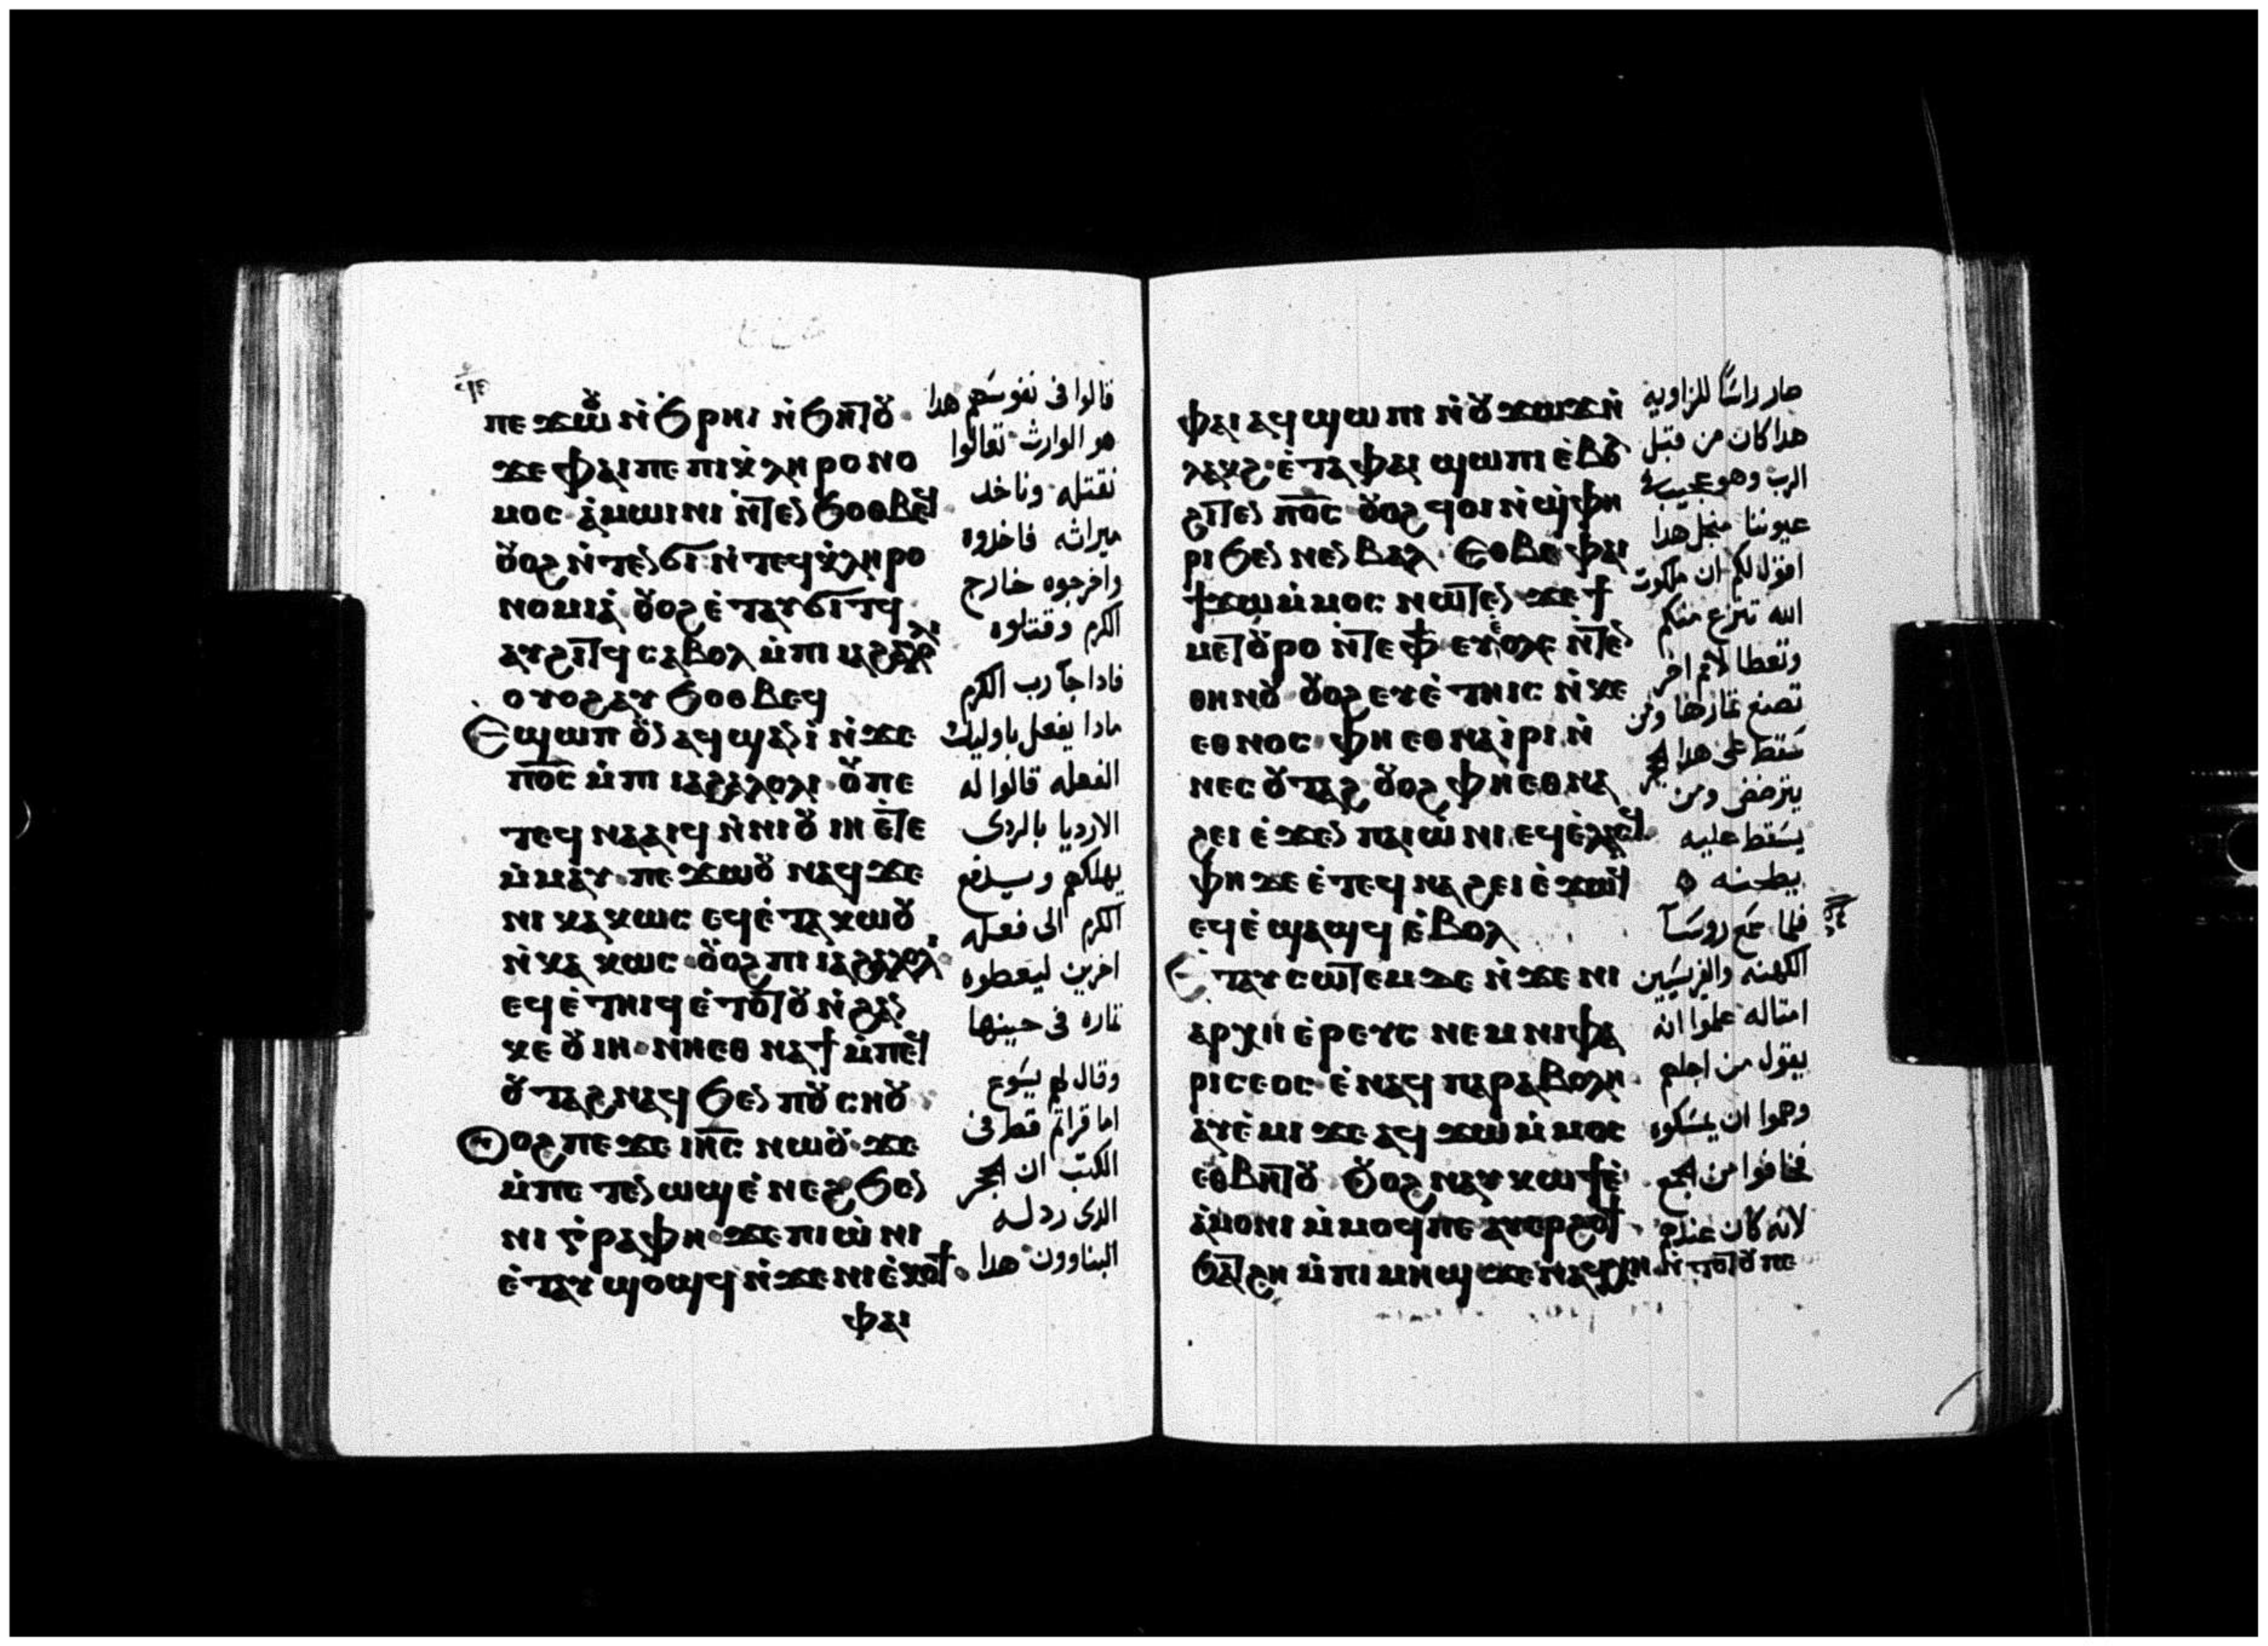 ⲡⲉϫⲱⲟⲩ ⲛ̀ϧⲣⲏⲓ ⲛ̀ϧⲏⲧⲟⲩ
ϫⲉ ⲫⲁⲓ ⲡⲉ ⲡⲓⲕ̀ⲗⲏⲣⲟⲛⲟ
ⲙⲟⲥ ⲁ̀ⲙⲱⲓⲛⲓ ⲛ̀ⲧⲉⲛϧⲟⲑⲃⲉϥ
ⲟⲩⲟϩ ⲛ̀ⲧⲉⲛϭⲓ ⲛ̀ⲧⲉϥⲕ̀ⲗⲏⲣⲟ
ⲛⲟⲙⲓⲁ̀ ⲟⲩⲟϩ ⲉ̀ⲧⲁⲩϭⲓⲧϥ
ⲁⲩϩⲓⲧϥ ⲥⲁⲃⲟⲗ ⲙ̀ⲡⲓⲓⲁϩⲁⲗⲟⲗⲓ
ⲟⲩⲟϩ ⲁⲩϧⲟⲑⲃⲉϥ
Ⲉϣⲱⲡ ⲟⲩⲛ ⲁϥϣⲁⲛⲓ̀ ⲛ̀ϫⲉ
ⲡⲟ̅ⲥ̅ ⲙ̀ⲡⲓⲓⲁϩⲁⲗⲟⲗⲓ ⲟⲩ ⲡⲉ
ⲧⲉϥⲛⲁⲁⲓϥ ⲛ̀ⲛⲓⲟⲩⲓⲏ ⲉ̀ⲧⲉ
ⲙ̀ⲙⲁⲩ ⲡⲉϫⲱⲟⲩ ⲛⲁϥ ϫⲉ
ⲛⲓⲕⲁⲕⲱⲥ ⲉϥⲉ̀ⲧⲁⲕⲱⲟⲩ
ⲛ̀ⲕⲁⲕⲱⲥ ⲟⲩⲟϩ ⲡⲓⲓⲁϩⲁⲗⲟⲗⲓ
ⲉϥⲉ̀ⲧⲏⲓϥ ⲉ̀ⲧⲟⲧⲟⲩ ⲛ̀ϩⲁⲛ
ⲕⲉⲟⲩⲓⲏ ⲛⲏⲉⲑⲛⲁϯ ⲙ̀ⲡⲉϥ
ⲟⲩⲧⲁϩ ⲛⲁϥ ϧⲉⲛ ⲡⲟⲩⲥⲏⲟⲩ
Ⲟⲩⲟϩ ⲡⲉϫⲉ ⲓⲏ̅ⲥ̅ ⲛⲱⲟⲩ ϫⲉ
ⲙ̀ⲡⲉⲧⲉⲛⲱϣ ⲉ̀ⲛⲉϩ ϧⲉⲛ
ⲛⲓⲅ̀ⲣⲁⲫⲏ ϫⲉ ⲡⲓⲱ̀ⲛⲓ
ⲉ̀ⲧⲁⲩϣⲟϣϥ ⲛ̀ϫⲉ ⲛⲓⲉ̀ⲕⲟϯ
ⲫⲁⲓ
قالوا فى نفوسهم هدا
هو الوارث تعالوا
نقتله وناخد
ميراثه فاخدوه
واخرجوه خارج
الكرم وقتلوه
فادا جآ رب الكرم
مادا يفعل باوليك
الفعله قالوا له
الارديا بالردى
يهلكهم ويسلم
الكرم الى فعله
اخرين ليعطوه
ثماره فى حينها
وقال لهم يسوع
اما قراتم قط فى
الكتب ان الحجر
الدى ردله
البناوون هدا
ⲫⲁⲓ ⲁϥϣⲱⲡⲓ ⲛ̀ⲟⲩϫⲱϫ ⲛ̀
ⲗⲁⲕϩ ⲉ̀ⲧⲁ ⲫⲁⲓ ϣⲱⲡⲓ ⲉ̀ⲃⲟⲗ
ϩⲓⲧⲉⲛ ⲡⲟ̅ⲥ̅ ⲟⲩⲟϩ ϥⲟⲓ ⲛ̀ϣ̀ⲫⲏ
ⲣⲓ ϧⲉⲛ ⲛⲉⲛⲃⲁⲗ Ⲉⲑⲃⲉ ⲫⲁⲓ
ϯϫⲱ ⲙ̀ⲙⲟⲥ ⲛⲱⲧⲉⲛ ϫⲉ ϯ
ⲙⲉⲧⲟⲩⲣⲟ ⲛ̀ⲧⲉ ⲫϯ ⲉⲩⲉ̀ⲟⲗⲥ ⲛ̀ⲧⲉⲛ
ⲑⲏⲛⲟⲩ ⲟⲩⲟϩ ⲉⲩⲉ̀ⲧⲏⲓⲥ ⲛ̀ⲕⲉ
ⲉⲑⲛⲟⲥ ⲫⲏⲉⲑⲛⲁⲓ̀ⲣⲓ ⲛ̀
ⲛⲉⲥⲟⲩⲧⲁϩ ⲟⲩⲟϩ ⲫⲏⲉⲑⲛⲁ
ϩⲉⲓ ⲉ̀ϫⲉⲛ ⲡⲁⲓⲱ̀ⲛⲓ ⲉϥⲉ̀ⲗⲁⲥ
ⲫⲏ ϫⲉ ⲉ̀ⲧⲉϥⲛⲁϩⲉⲓ ⲉ̀ϫⲱϥ
ⲉϥⲉ̀ϣⲁϣϥ ⲉ̀ⲃⲟⲗ
Ⲉⲧⲁⲩⲥⲱⲧⲉⲙ ⲇⲉ ⲛ̀ϫⲉ ⲛⲓ
ⲁⲣⲭⲓⲉ̀ⲣⲉⲩⲥ ⲛⲉⲙ ⲛⲓⲫⲁ
ⲣⲓⲥⲉⲟⲥ ⲉ̀ⲛⲁϥⲡⲁⲣⲁⲃⲟⲗⲏ
ⲁⲩⲉ̀ⲙⲓ ϫⲉ ⲁϥϫⲱ ⲙ̀ⲙⲟⲥ
ⲉⲑⲃⲏⲧⲟⲩ Ⲟⲩⲟϩ ⲛⲁⲩⲕⲱϯ ⲉ̀
ⲁ̀ⲙⲟⲛⲓ ⲙ̀ⲙⲟϥ ⲡⲉ ⲁⲩⲉⲣϩⲟϯ
ϧⲁⲧϩⲏ ⲙ̀ⲡⲓⲙⲏϣ ϫⲉ ⲛⲁϥⲭⲏ ⲛ̀ⲧⲟⲧⲟⲩ ⲡⲉ
صار راسًا للزاوية
هدا كان من قبل
الرب وهو عجيب فى
عيوننا منجل هدا
اقول لكم ان ملكوت
الله تنزع منكم
وتعطا لامم اخر
تصنع ثمارها ومن
سقط على هدا الحجر
يترضض ومن
يسقط عليه
يطحنه
فلما سمع روسآ
الكهنه والفريسيين
امثاله علموا انه
يقول من اجلهم
وهموا ان يمسكوه
فخافوا من الجمع
لانه كان عندهم